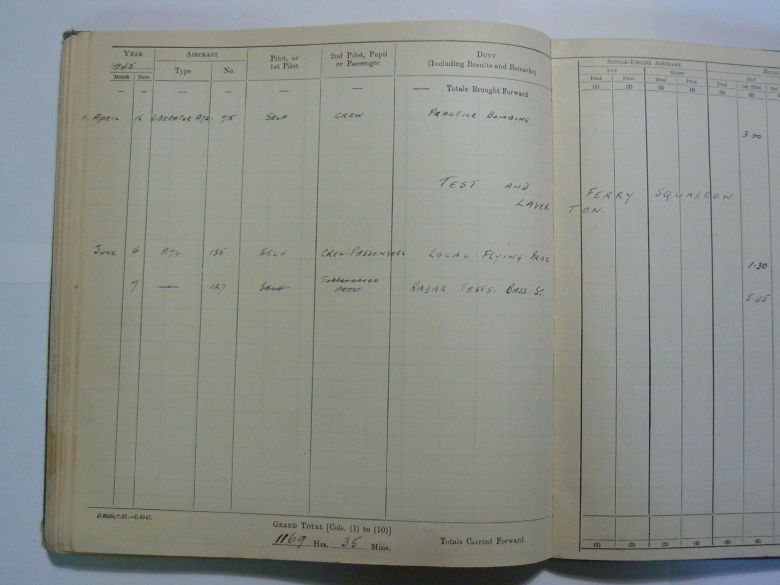 YEAR AIRCRAFT Pilot, or 1st Pilot 2nd Pilot, Pupil or Passenger DUTY (Including Results and Remarks)
1945
Month Date Type No.
SINGLE-ENGINE AIRCRAFT
DAY NIGHT DAY
Dual Pilot Dual Pilot Dual 1st Pilot
(1) (2) (3) (4) (5) (6)
— — — — — — —— Totals Brought Forward
APRIL 16 LIBERATOR A72. 75 SELF CREW PRACTICE BOMBING
3.00
TEST AND FERRY SQUADRON
LAVERTON.
JUNE 4 A72 185 SELF CREW-PASSENGERS LOCAL FLYING PRAC
1.30
7 — 127 SELF RADAR TESTS. BASS ST.
5.45
GRAND TOTAL [Cols. (1) to (10)]
1169 Hrs. 35 Mins. Totals Carried Forward
(1) (2) (3) (4) (5) (6)